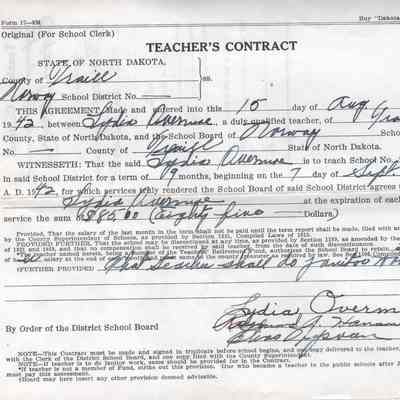 Form 17—8M Buy "Dakota
Original (For School Clerk)
TEACHER'S CONTRACT
STATE OF NORTH DAKOTA,
County of Traill ss.
Norway School District No. —
THIS AGREEMENT, Made and entered into this 15 day of Aug
1942, between Lydia Overmoe, a duly qualified teacher, of
County, State of North Dakota, and the School Board of Norway Scho
No. — County of Traill State of North Dakota.
WITNESSETH: That the said Lydia Overmoe is to teach School No.
in said School District for a term of 9 months, beginning on the 7 day of Sept.
A. D. 1942 for which services truly rendered the School Board of said School District agrees t
Lydia Overmoe at the expiration of each
service the sum of $85.00 (eighty five Dollars.)
Provided, That the salary of the last month in the term shall not be paid until the term report shall be made, filed with
by the County Superintendent of Schools, as provided by Section
PROVIDED FURTHER, That the school may be discontinued at any time, as provided by Section 1189, as amended by the
of 1921 and 1925, and that no compensation shall be received by said teacher, from the date of such discontinuance.
*The teacher named herein, being a member of the Teachers' Retirement Fund, authorizes the School Board to retain
salary at the end of each and same to the county treasurer as required by law. See
(FURTHER PROVIDED) That teacher shall do janitor
Lydia Overm
By Order of the District School Board
NOTE—This Contract must be made and signed in triplicate before school begins, and one copy delivered to the teacher,
with the Clerk of the District School Board, and one copy filed with the County Superintendent.
NOTE—If teacher is to do janitor work, same should be provided for in the Contract.
*If teacher is not a member of Fund, strike out this provision. One who became a teacher in the public schools after J
must pay this assessment.
‡Board may here insert any other provision deemed advisable.